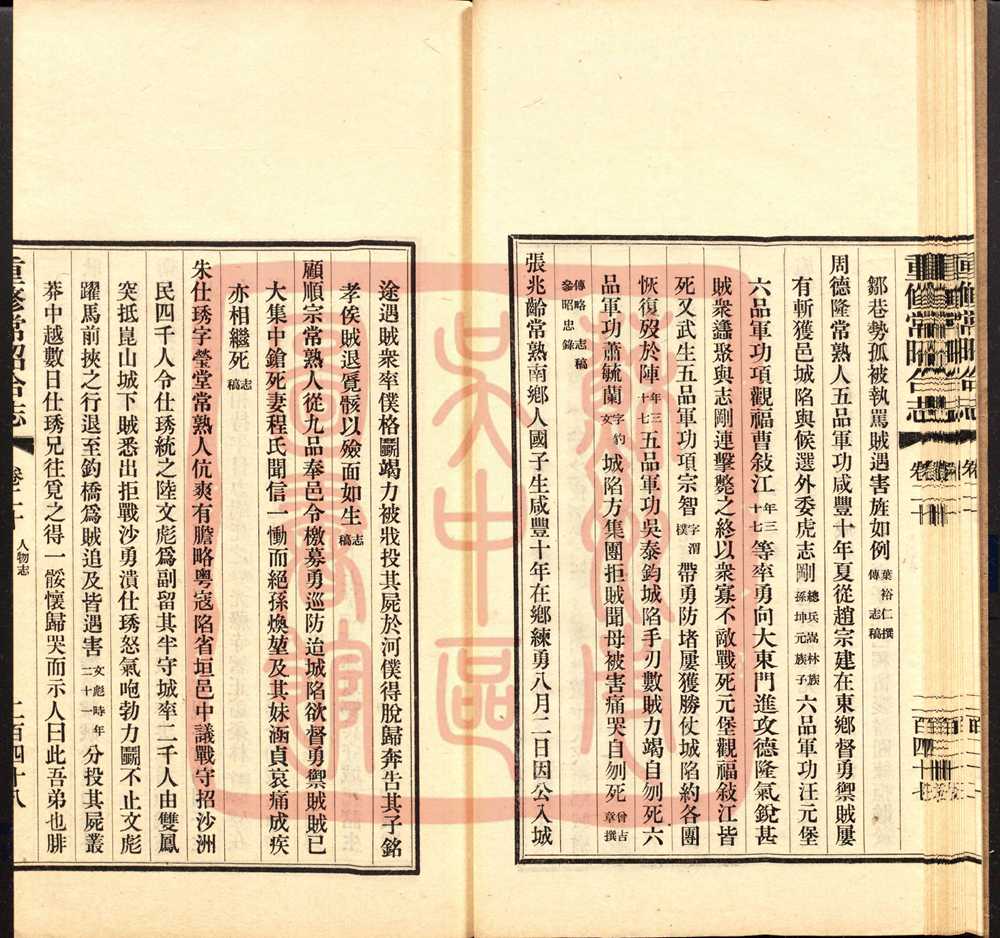 鄒巷勢孤被執罵賊遇害旌如例葉裕仁撰傳 志稿
周德隆常熟人五品軍功咸豐十年夏從趙宗建在東鄉督勇禦賊屢
有斬獲邑城陷與候選外委虎志剛總兵嵩林族孫坤元族子六品軍功汪元堡
六品軍功項觀福曹敍江年三十七等率勇向大東門進攻德隆氣銳甚
賊衆蠭聚與志剛連擊斃之終以衆寡不敵戰死元堡觀福敍江皆
死又武生五品軍功項宗智字渭樸帶勇防堵屢獲勝仗城陷約各團
恢復歿於陣年三十七五品軍功吳泰鈞城陷手刃數賊力竭自刎死六
品軍功蕭毓蘭字豹文城陷方集團拒賊聞母被害痛哭自刎死曾吉章撰
傳略 志稿參昭忠錄
張兆齡常熟南鄉人國子生咸豐十年在鄉練勇八月二日因公入城
途遇賊衆率僕格鬬竭力被戕投其屍於河僕得脫歸奔告其子銘
孝俟賊退覓骸以殮面如生志稿
顧順宗常熟人從九品奉邑令檄募勇巡防治城陷欲督勇禦賊賊已
大集中鎗死妻程氏聞信一慟而絕孫煥堃及其妹涵貞哀痛成疾
亦相繼死志稿
朱仕琇字瑩堂常熟人伉爽有膽略粵寇陷省垣邑中議戰守招沙洲
民四千人令仕琇統之陸文彪爲副留其半守城率二千人由雙鳳
突抵崑山城下賊悉出拒戰沙勇潰仕琇怒氣咆勃力鬬不止文彪
躍馬前挾之行退至鈞橋爲賊追及皆遇害文彪時年二十一分投其屍叢
莽中越數日仕琇兄往覓之得一骸懷歸哭而示人曰此吾弟也腓
重修常昭合志
卷二十 人物志
二百四十八